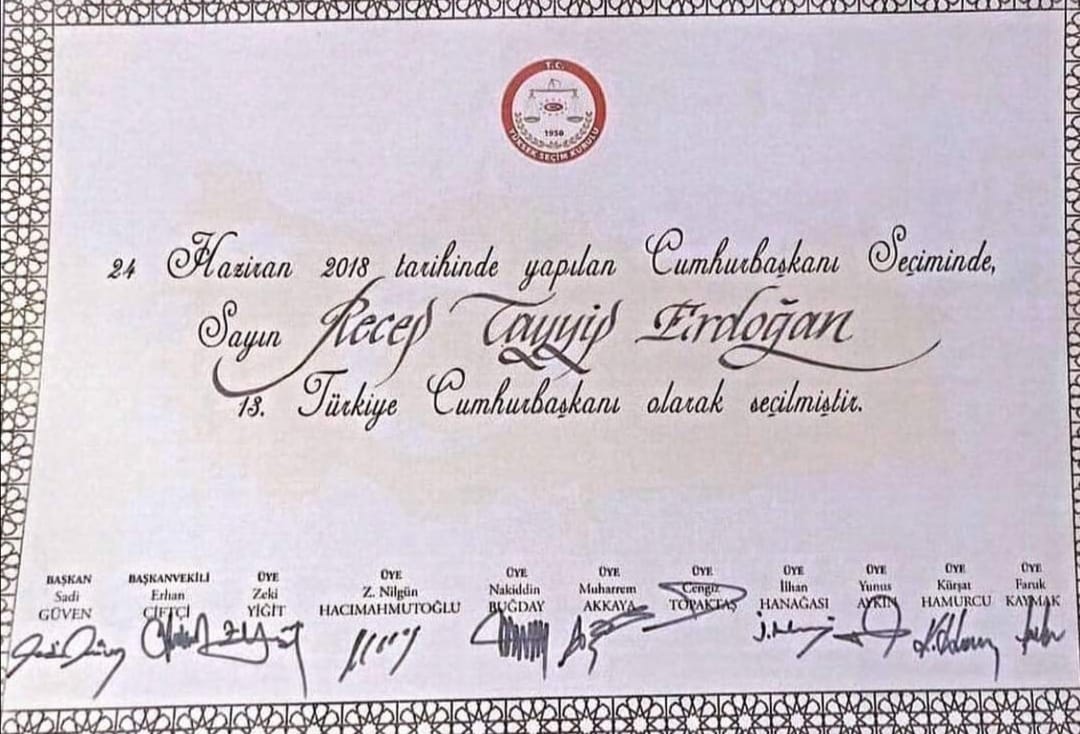 T.C.
1950
YÜKSEK SEÇİM KURULU
24 Haziran 2018 tarihinde yapılan Cumhurbaşkanı Seçiminde,
Sayın Recep Tayyip Erdoğan
13. Türkiye Cumhurbaşkanı olarak seçilmiştir.
BAŞKAN
Sadi
GÜVEN
BAŞKANVEKİLİ
Erhan
ÇİFTÇİ
ÜYE
Zeki
YİĞİT
ÜYE
Z. Nilgün
HACIMAHMUTOĞLU
ÜYE
Nakiddin
BUĞDAY
ÜYE
Muharrem
AKKAYA
ÜYE
Cengiz
TOPAKTAŞ
ÜYE
İlhan
HANAĞASI
ÜYE
Yunus
AYKIN
ÜYE
Kürşat
HAMURCU
ÜYE
Faruk
KAYMAK